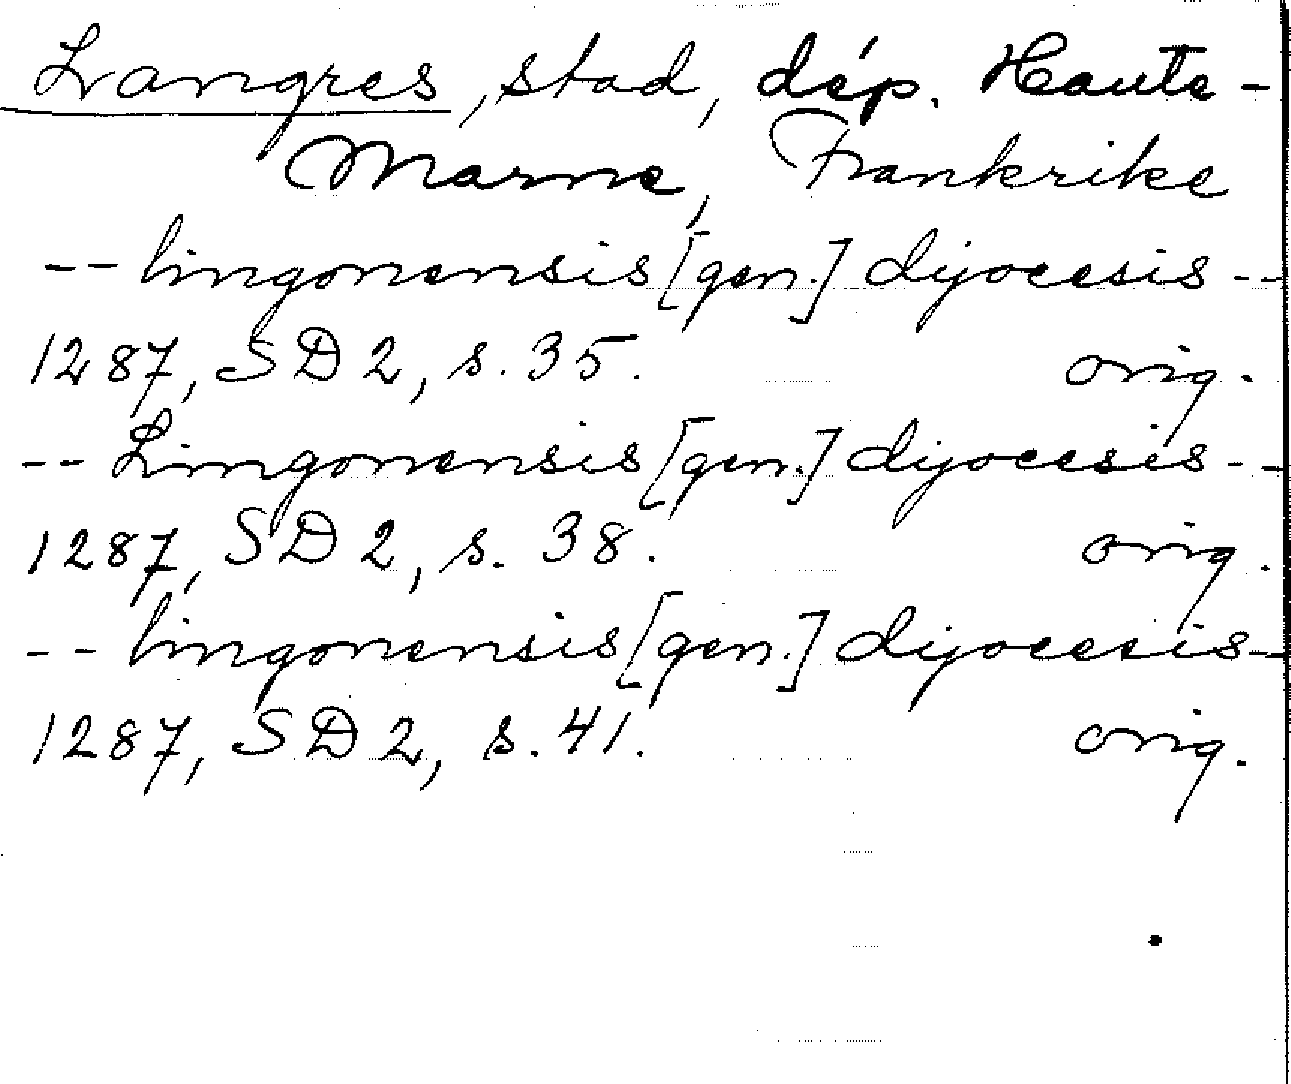 Langres, stad, dép. Haute-
Marne, Frankrike
-- lingonensis [gen.] dijocesis --
1287, SD 2, s. 35. orig.
-- Lingonensis [gen.] dijocesis --
1287, SD 2, s. 38. orig.
-- lingonensis [gen.] dijocesis --
1287, SD 2, s. 41. orig.